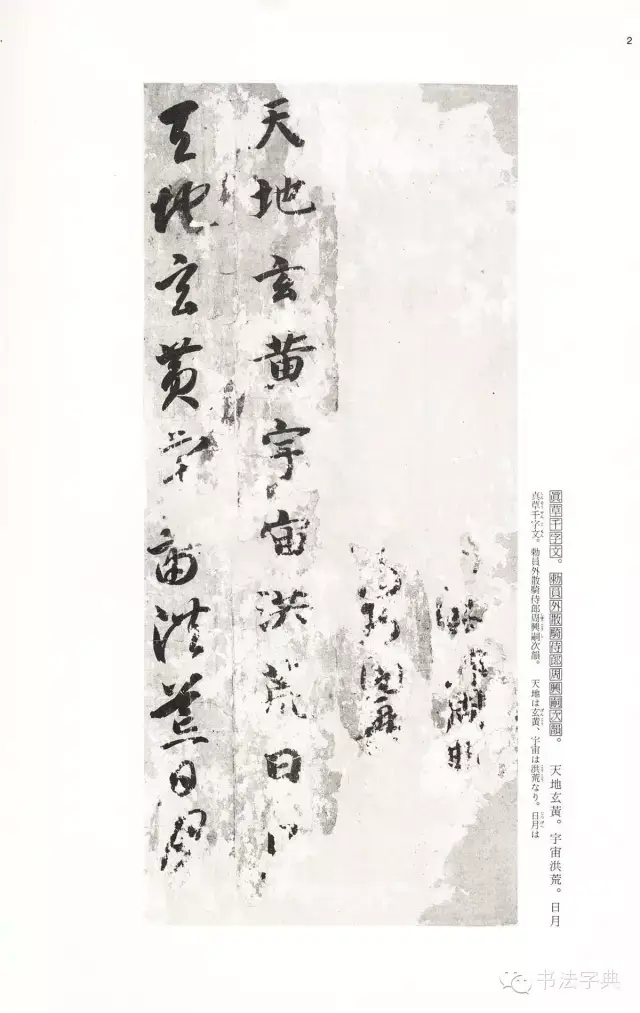 2
眞草千字文。勅員外散騎侍郎周興嗣次韻。　天地玄黃。宇宙洪荒。日月
真草千字文。勅員外散騎侍郎周興嗣次韻。　天地は玄黄、宇宙は洪荒なり。日月は
天地玄黄宇宙洪荒日月
天地玄黄宇宙洪荒日月
书法字典